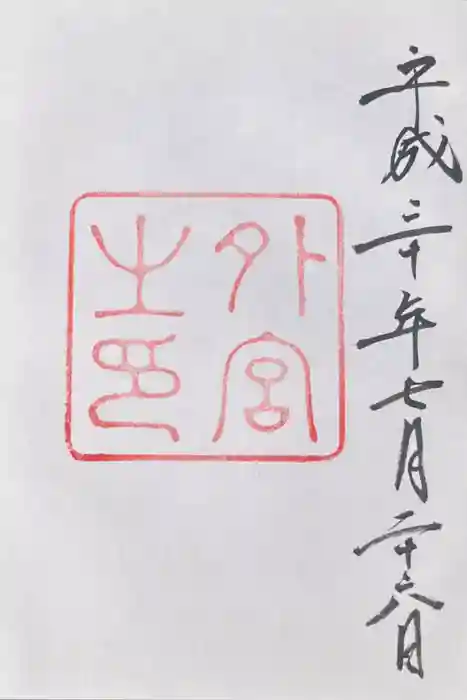 平成三十年七月二十六日
外宮
之印